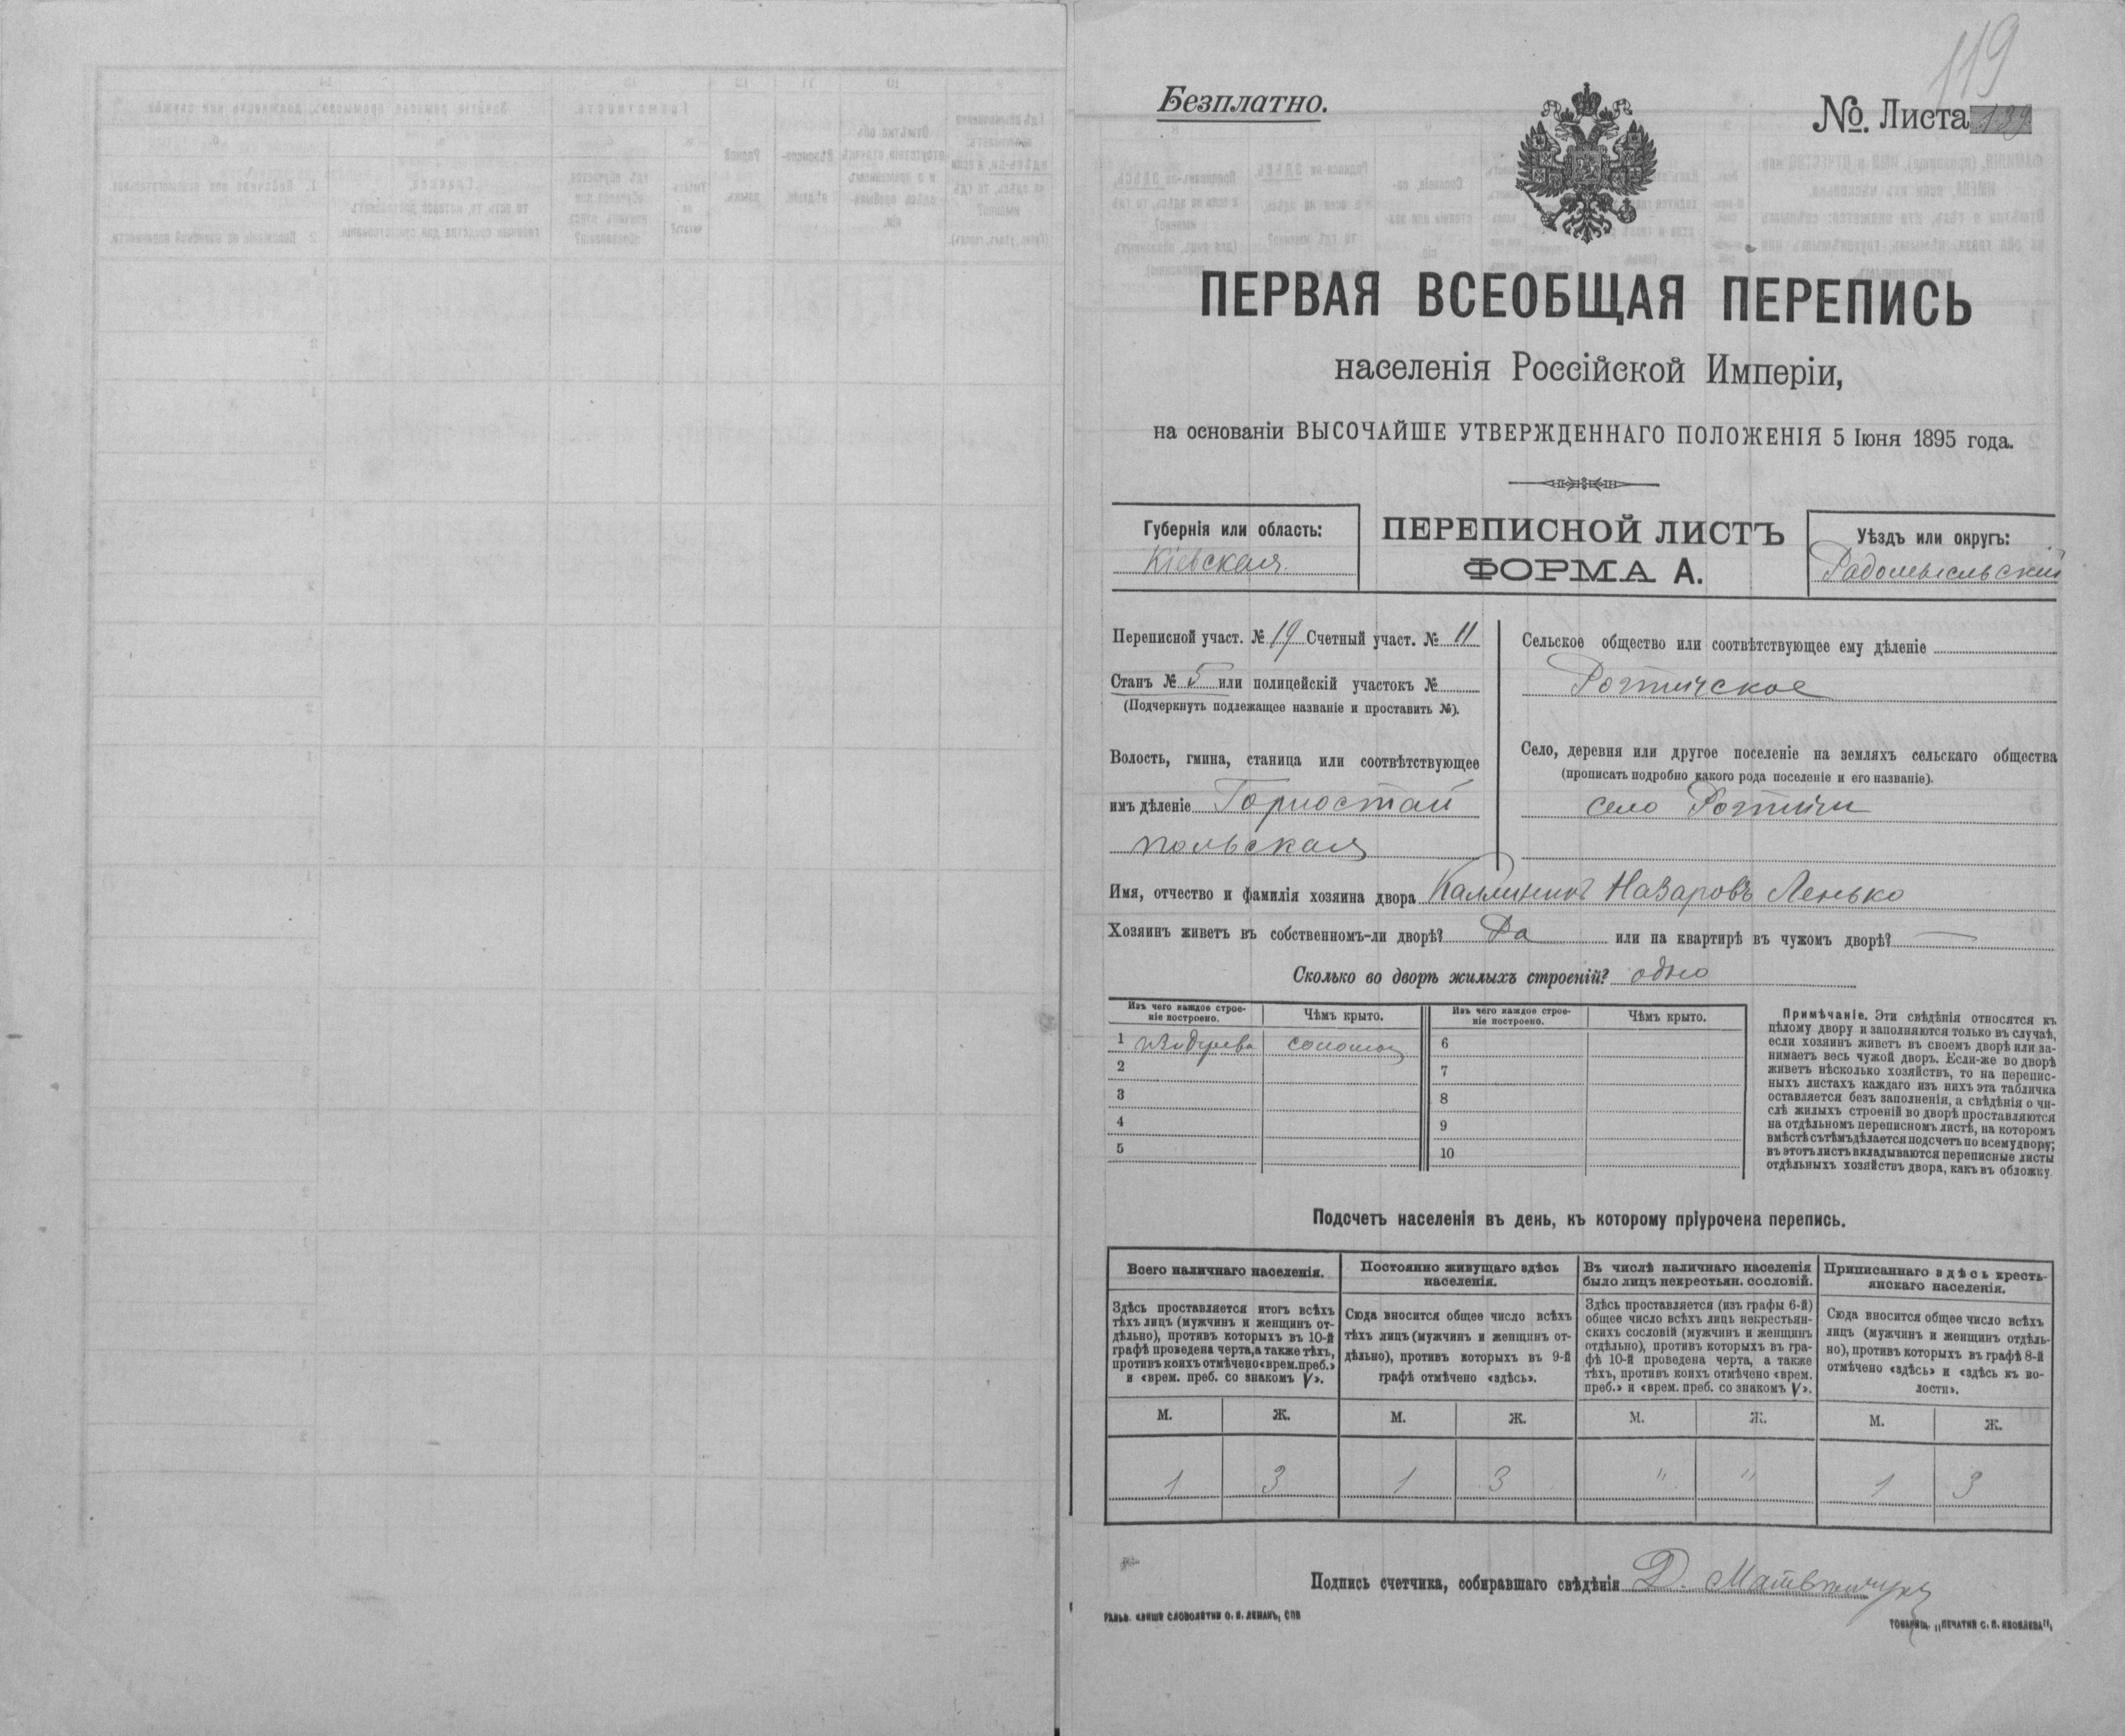 119
Безплатно.
№ Листа 139
ПЕРВАЯ ВСЕОБЩАЯ ПЕРЕПИСЬ
населенія Россійской Имперіи,
на основаніи ВЫСОЧАЙШЕ УТВЕРЖДЕННАГО ПОЛОЖЕНІЯ 5 Іюня 1895 года.
Губернія или область:
Кіевская
ПЕРЕПИСНОЙ ЛИСТЪ
ФОРМА А.
Уѣздъ или округъ:
Радомысльскій
Переписной участ. № 19 Счетный участ. № 11
Станъ № 5 или полицейскій участокъ №
(Подчеркнуть подлежащее названіе и проставить №).
Волость, гмина, станица или соотвѣтствующее
имъ дѣленіе Горностай
польская
Сельское общество или соотвѣтствующее ему дѣленіе
Ротичское
Село, деревня или другое поселеніе на земляхъ сельскаго общества
(прописать подробно какого рода поселеніе и его названіе).
село Ротичи
Имя, отчество и фамилія хозяина двора Каллиникъ Назаровъ Ленько
Хозяинъ живетъ въ собственномъ-ли дворѣ? Да или на квартирѣ въ чужомъ дворѣ? —
Сколько во дворѣ жилыхъ строеній? одно
Изъ чего каждое строе-
ніе построено.
Чѣмъ крыто.
Изъ чего каждое строе-
ніе построено.
Чѣмъ крыто.
1 изъ дерева соломою 6
2 7
3 8
4 9
5 10
Примѣчаніе. Эти свѣдѣнія относятся къ
цѣлому двору и заполняются только въ случаѣ,
если хозяинъ живетъ въ своемъ дворѣ или за-
нимаетъ весь чужой дворъ. Если-же во дворѣ
живетъ нѣсколько хозяйствъ, то на перепис-
ныхъ листахъ каждаго изъ нихъ эта табличка
оставляется безъ заполненія, а свѣдѣнія о чи-
слѣ жилыхъ строеній во дворѣ проставляются
на отдѣльномъ переписномъ листѣ, на которомъ
вмѣстѣ съ тѣмъ дѣлается подсчетъ по всему двору;
въ этотъ листъ вкладываются переписные листы
отдѣльныхъ хозяйствъ двора, какъ въ обложку.
Подсчетъ населенія въ день, къ которому пріурочена перепись.
Всего наличнаго населенія.
Здѣсь проставляется итогъ всѣхъ
тѣхъ лицъ (мужчинъ и женщинъ от-
дѣльно), противъ которыхъ въ 10-й
графѣ проведена черта, а также тѣхъ,
противъ коихъ отмѣчено «врем. преб.»
и «врем. преб. со знакомъ V».
Постоянно живущаго здѣсь
населенія.
Сюда вносится общее число всѣхъ
тѣхъ лицъ (мужчинъ и женщинъ от-
дѣльно), противъ которыхъ въ 9-й
графѣ отмѣчено «здѣсь».
Въ числѣ наличнаго населенія
было лицъ некрестьян. сословій.
Здѣсь проставляется (изъ графы 6-й)
общее число всѣхъ лицъ некрестьян-
скихъ сословій (мужчинъ и женщинъ
отдѣльно), противъ которыхъ въ гра-
фѣ 10-й проведена черта, а также
тѣхъ, противъ коихъ отмѣчено «врем.
преб.» и «врем. преб. со знакомъ V».
Приписаннаго здѣсь кресть-
янскаго населенія.
Сюда вносится общее число всѣхъ
лицъ (мужчинъ и женщинъ отдѣль-
но), противъ которыхъ въ графѣ 8-й
отмѣчено «здѣсь» и «здѣсь къ во-
лости».
М. Ж. М. Ж. М. Ж. М. Ж.
1 3 1 3 " " 1 3
Подпись счетчика, собиравшаго свѣдѣнія Д.
ГАЛЬВ. КЛИШЕ СЛОВОЛИТНИ О. И. ЛЕМАНЪ, СПБ
ТОВАРИЩ. „ПЕЧАТНИ С. П. ЯКОВЛЕВА“,